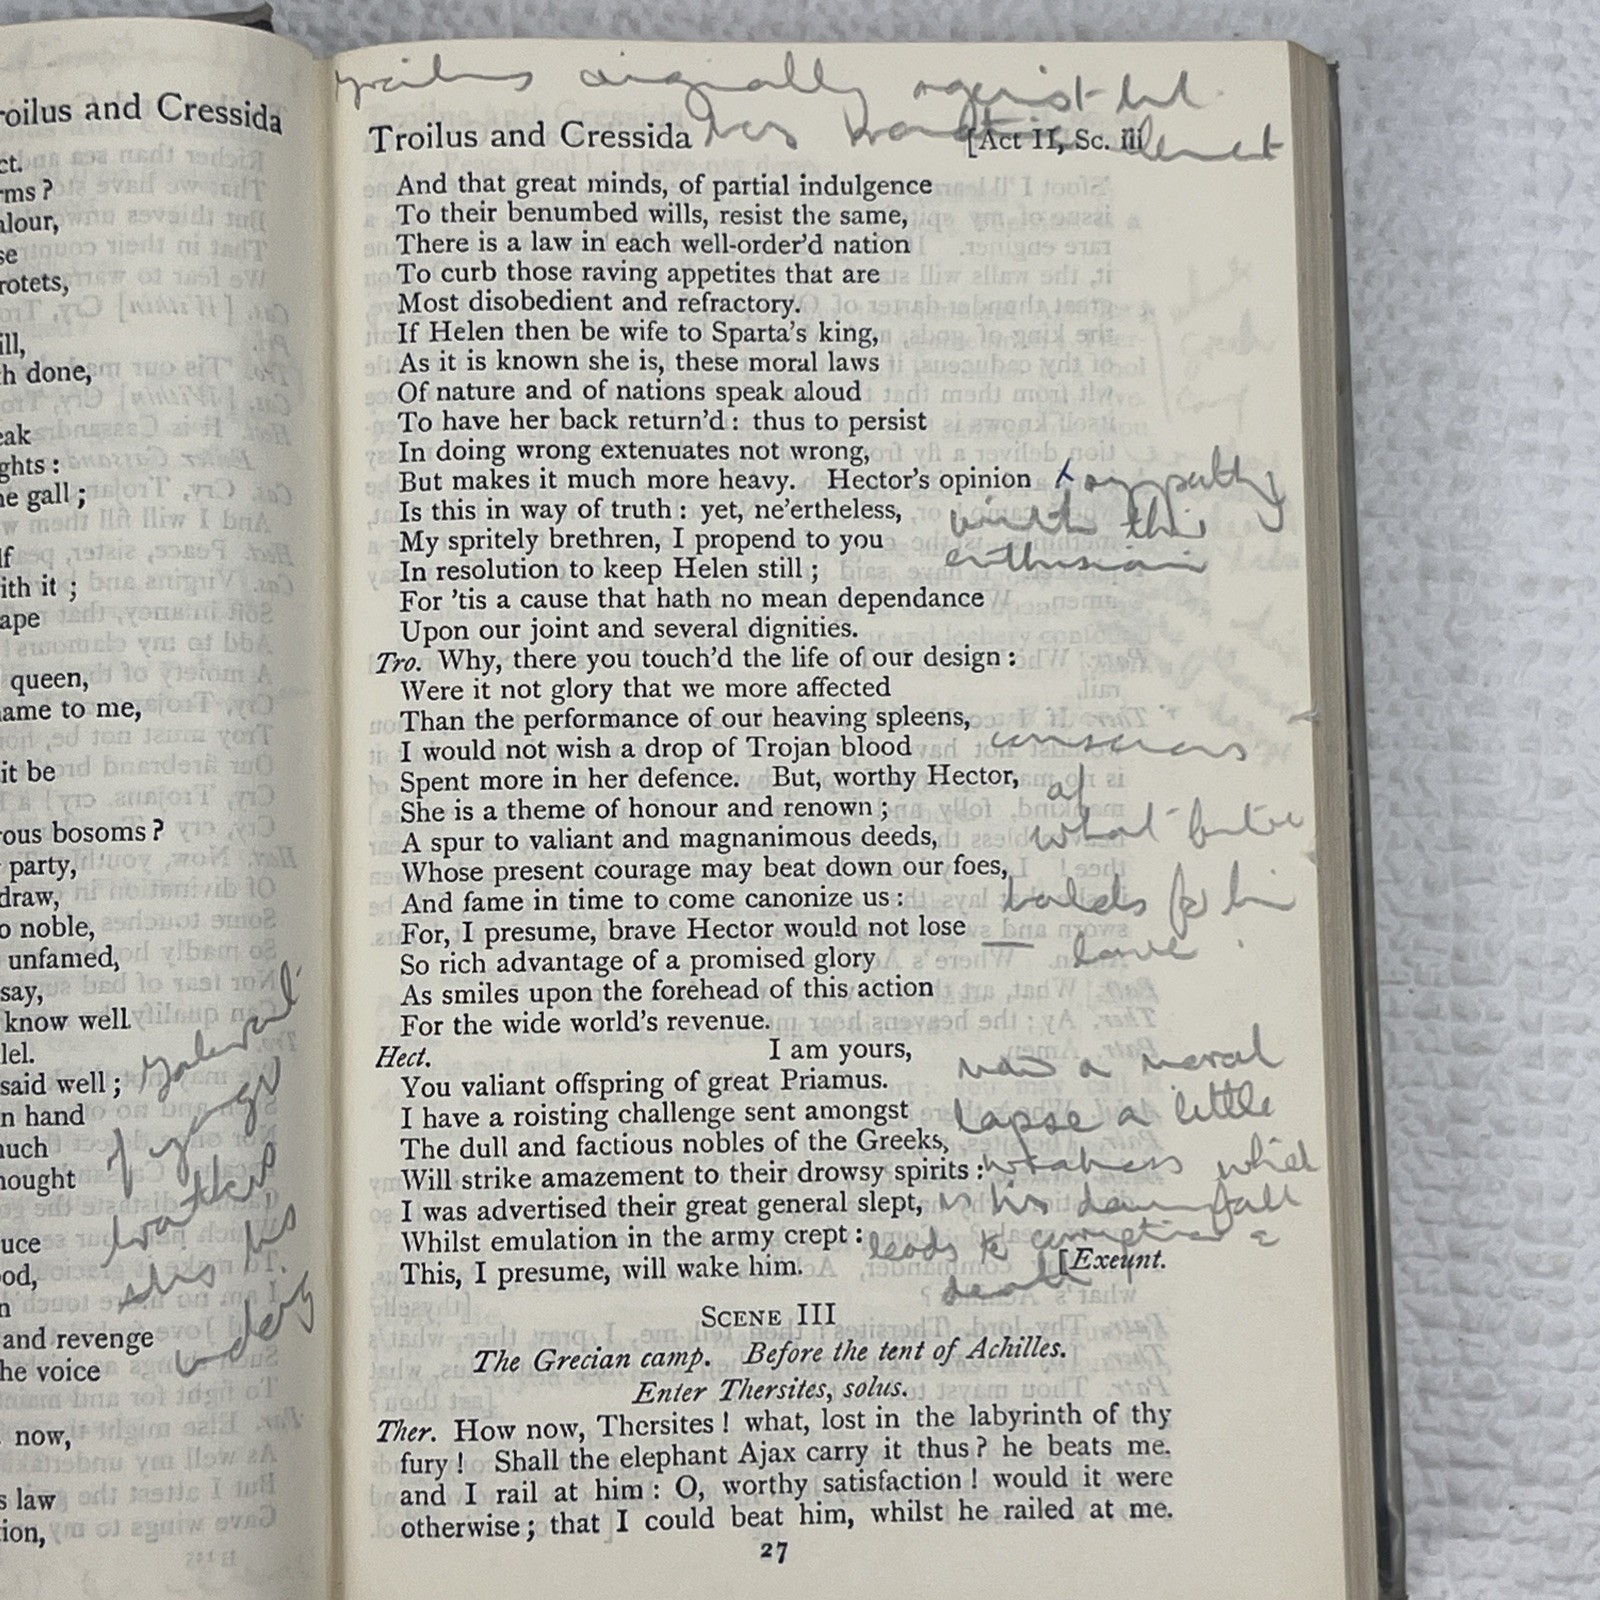 roilus and Cressida
ct.
rms ?
alour,
se
rotets,
ill,
h done,
eak
ghts :
he gall ;
lf
ith it ;
ape
queen,
ame to me,
it be
rous bosoms ?
party,
draw,
o noble,
unfamed,
say,
know well
lel.
said well ;
n hand
nuch
hought
uce
od,
n
and revenge
he voice
now,
s law
ion,
originally against but
Troilus and Cressida has [Act II, Sc. iii
And that great minds, of partial indulgence
To their benumbed wills, resist the same,
There is a law in each well-order'd nation
To curb those raving appetites that are
Most disobedient and refractory.
If Helen then be wife to Sparta's king,
As it is known she is, these moral laws
Of nature and of nations speak aloud
To have her back return'd : thus to persist
In doing wrong extenuates not wrong,
But makes it much more heavy. Hector's opinion sympathy
Is this in way of truth : yet, ne'ertheless, with this
My spritely brethren, I propend to you enthusiasm
In resolution to keep Helen still ;
For 'tis a cause that hath no mean dependance
Upon our joint and several dignities.
Tro. Why, there you touch'd the life of our design :
Were it not glory that we more affected
Than the performance of our heaving spleens,
I would not wish a drop of Trojan blood conscious
Spent more in her defence. But, worthy Hector, of
She is a theme of honour and renown ;
A spur to valiant and magnanimous deeds, what future
Whose present courage may beat down our foes,
And fame in time to come canonize us : holds for him
For, I presume, brave Hector would not lose
So rich advantage of a promised glory love
As smiles upon the forehead of this action
For the wide world's revenue.
Hect. I am yours, a moral
You valiant offspring of great Priamus.
I have a roisting challenge sent amongst lapse a little
The dull and factious nobles of the Greeks,
Will strike amazement to their drowsy spirits : weakness which
I was advertised their great general slept, is his downfall
Whilst emulation in the army crept : leads to corruption &
This, I presume, will wake him. [Exeunt.
death
SCENE III
The Grecian camp. Before the tent of Achilles.
Enter Thersites, solus.
Ther. How now, Thersites ! what, lost in the labyrinth of thy
fury ! Shall the elephant Ajax carry it thus ? he beats me.
and I rail at him : O, worthy satisfaction ! would it were
otherwise ; that I could beat him, whilst he railed at me.
27